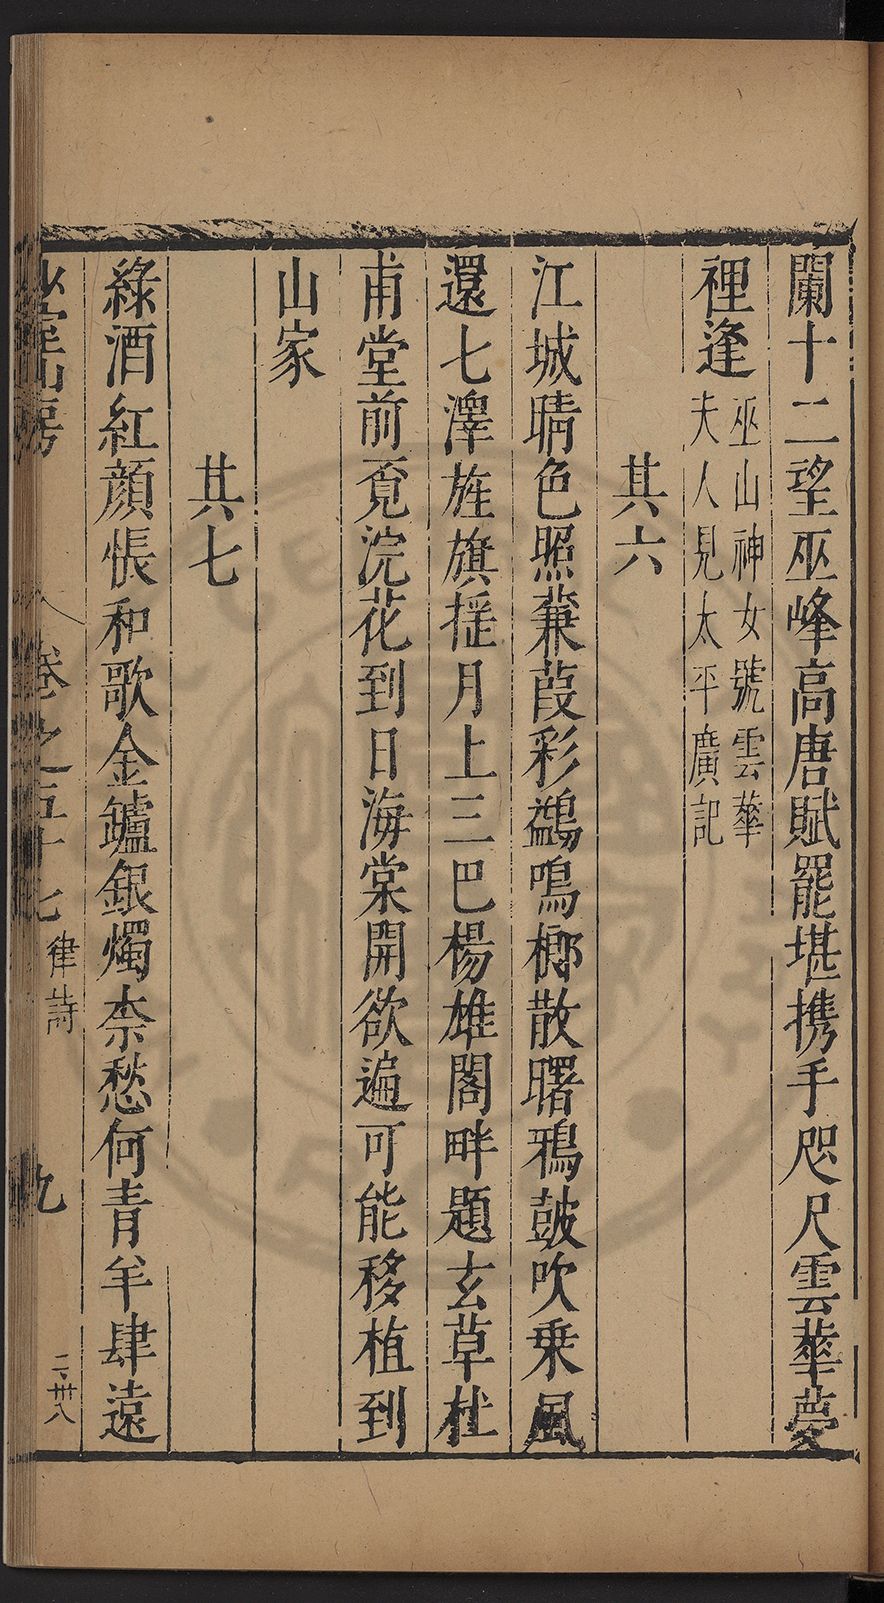 闌十二望巫峰高唐賦罷堪携手咫尺雲華夢
裡逢
巫山神女號雲華
夫人見太平廣記
其六
江城晴色照蒹葭彩鷁鳴榔散曙鴉鼓吹乗風
還七澤旌旗揺月上三巴楊雄閣畔題玄草杜
甫堂前覔浣花到日海棠開欲遍可能移植到
山家
其七
綠酒紅顔悵和歌金鑪銀燭柰愁何青羊肆遠
卷之五十七
律詩
九
二卅八